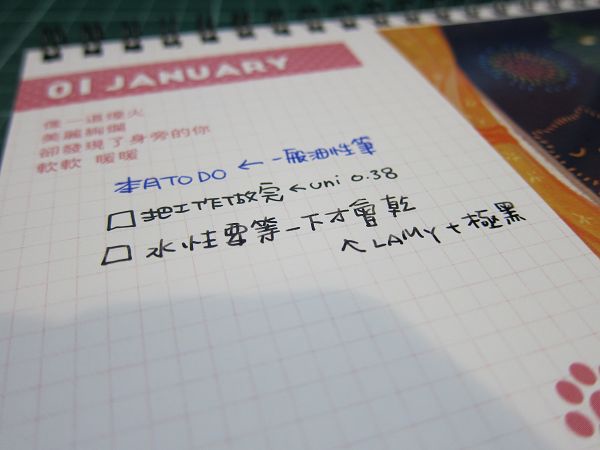 01 JANUARY
像一道煙火
美麗絢爛
卻發現了身旁的你
軟軟 暖暖
本月TODO ← 一般油性筆
□ 把工作做完 ← uni 0.38
□ 水性要等一下才會乾
↖ LAMY + 極黑